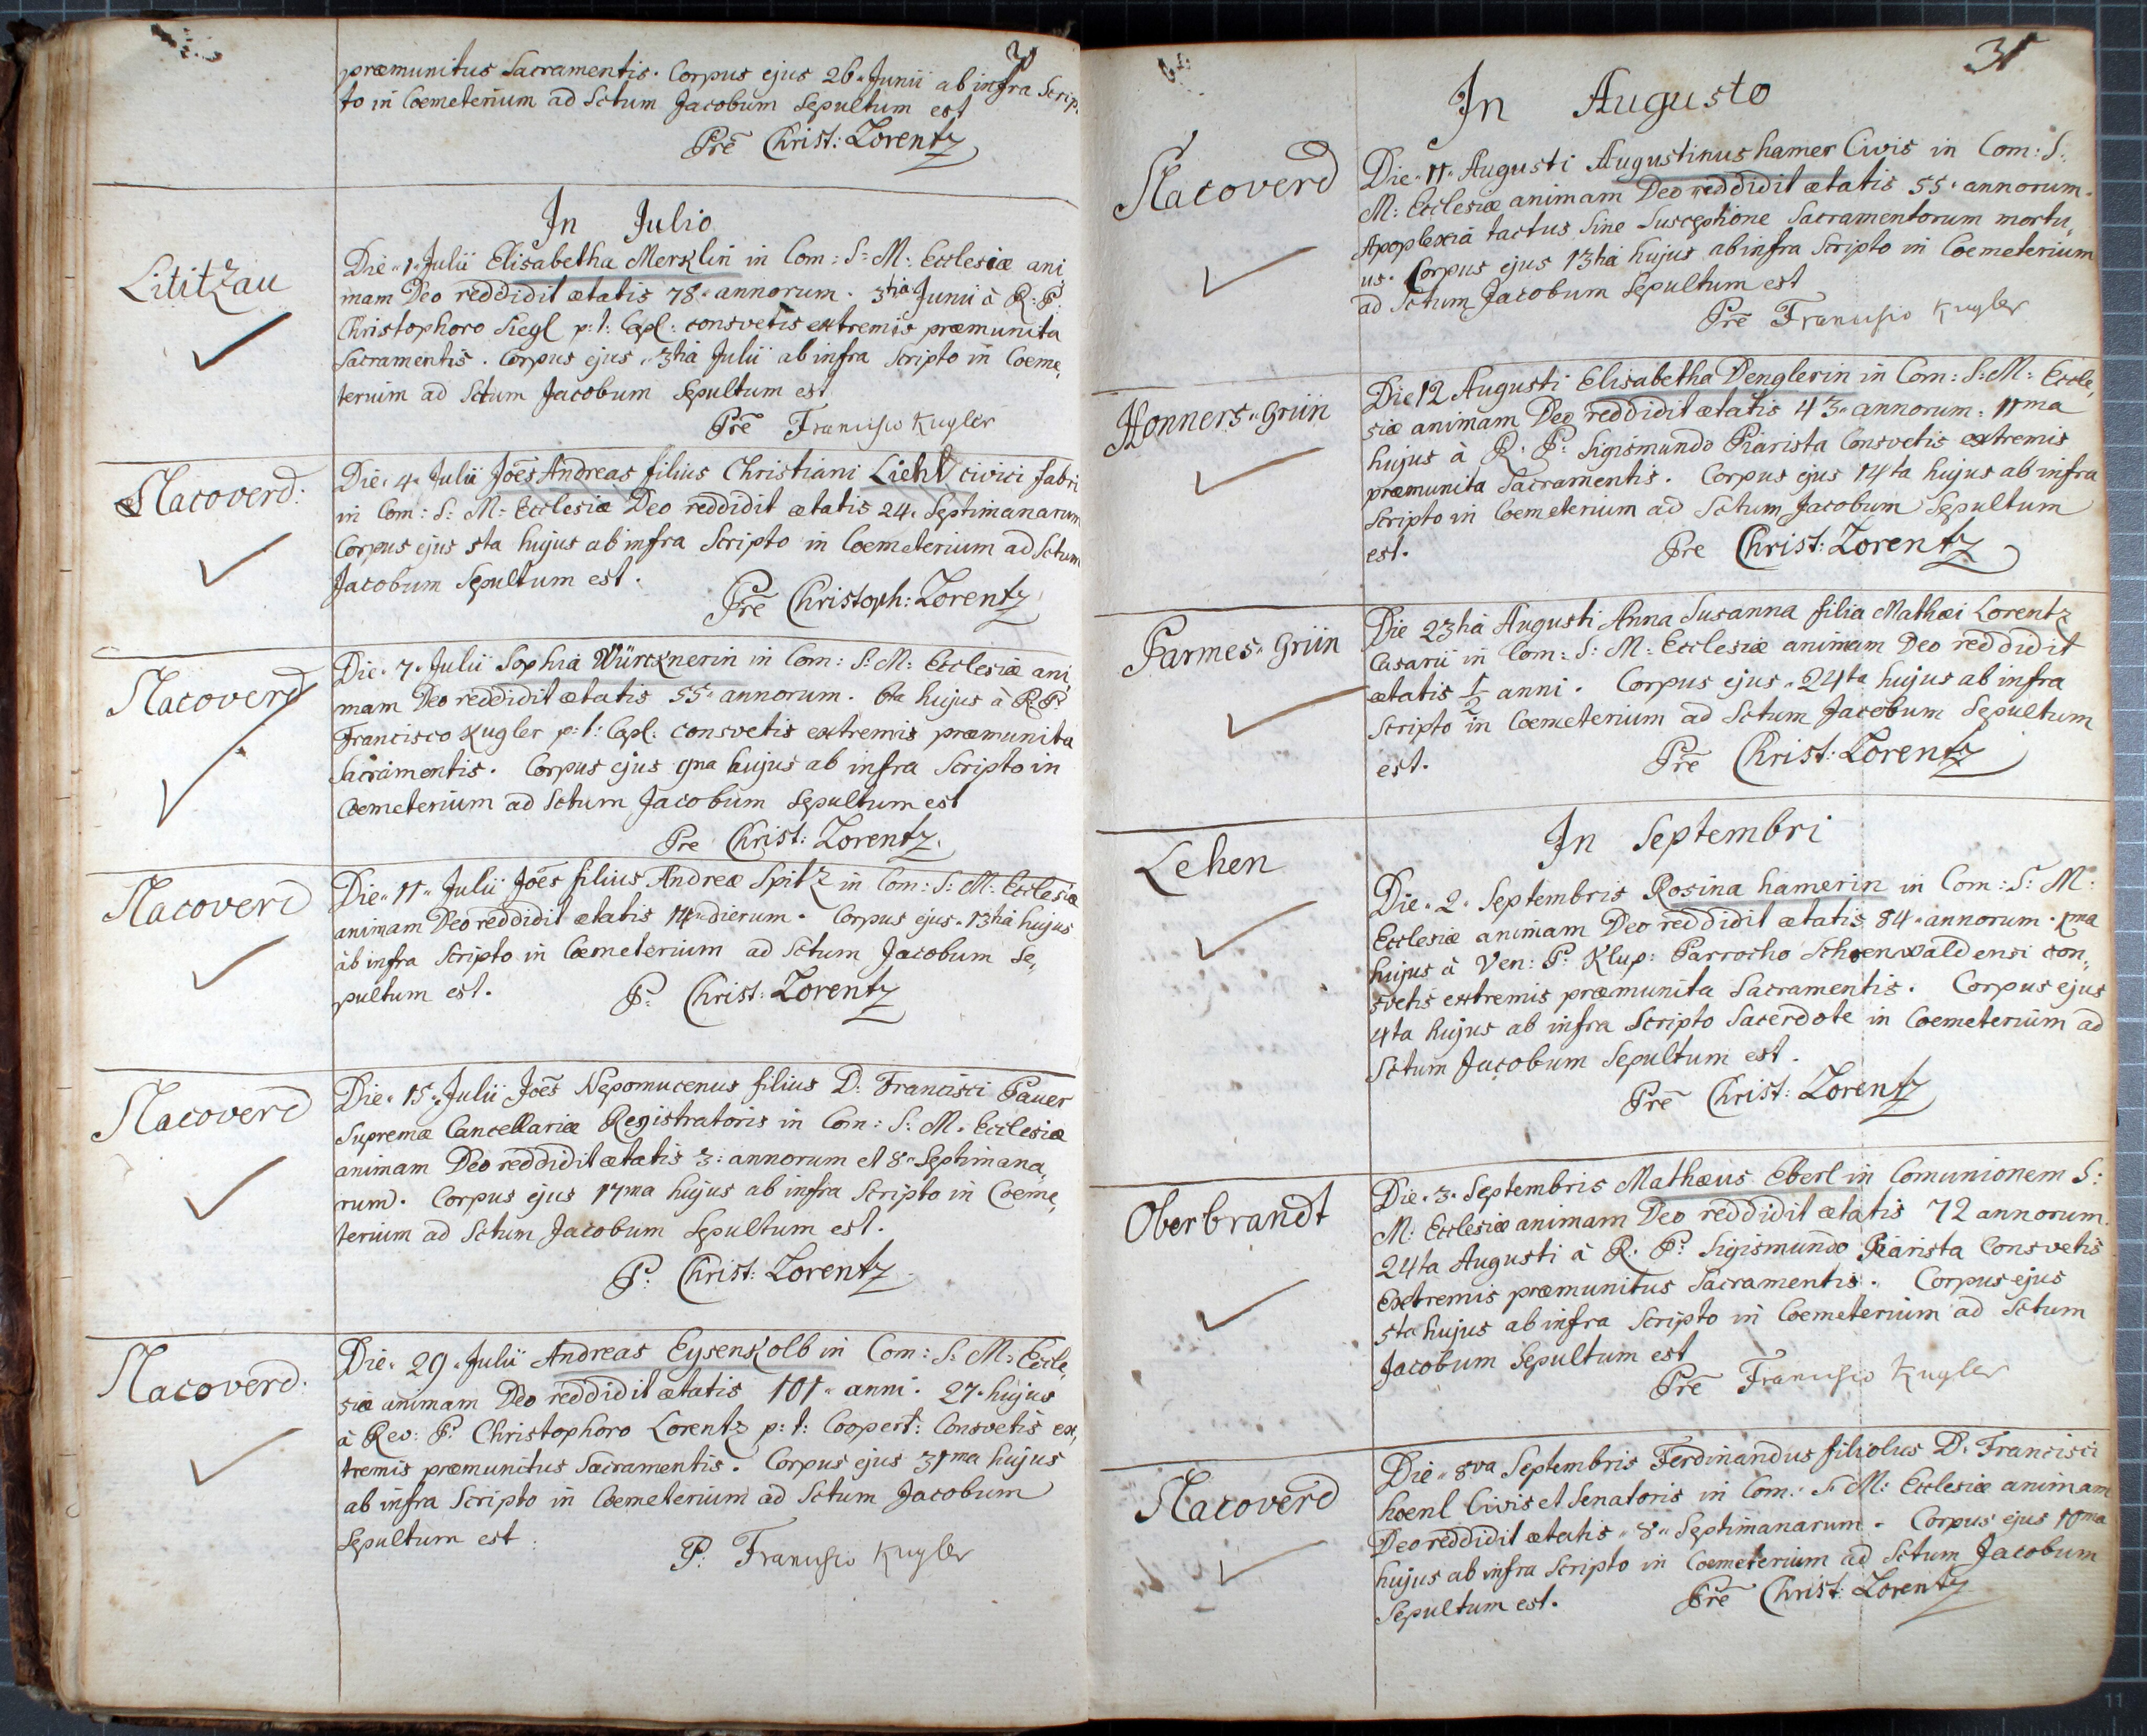 præmunitus Sacramentis. Corpus ejus 26 Junii ab infra Scrip
to in Coemeterium ad Sctum Jacobum Sepultum est
Pre Christ: Lorentz
In Julio
Lititzau
Die 1 Julii Elisabetha Mersklin in Com: S: M: Ecclesiæ ani
mam Deo reddidit ætatis 78 annorum. 3tia Junii à R: P:
Christophoro Siegl p: t: Capl: consvetis extremis præmunita
Sacramentis. Corpus ejus 3tia Julii ab infra Scripto in Coeme„
terium ad Sctum Jacobum Sepultum est
Pre Francisco Kugler
Slacoverd:
Die 4 Julii Joẽs Andreas filius Christiani Liehl civici fabri
in Com: S: M: Ecclesiæ Deo reddidit ætatis 24 Septimanarum
Corpus ejus 5ta hujus ab infra Scripto in Coemeterium ad Sctum
Jacobum Sepultum est.
Pre Christoph: Lorentz
Slacoverd
Die 7 Julii Sophia Würcknerin in Com: S: M: Ecclesiæ ani„
mam Deo reddidit ætatis 55 annorum. 6ta hujus à R: P:
Francisco Kugler p: t: Capl: consvetis extremis præmunita
Sacramentis. Corpus ejus 9na hujus ab infra Scripto in
Coemeterium ad Sctum Jacobum Sepultum est
Pre Christ: Lorentz
Slacoverd
Die 11 Julii Joẽs filius Andreæ Spitz in Com: S: M: Ecclesiæ
animam Deo reddidit ætatis 14 dierum. Corpus ejus 13tia hujus
ab infra Scripto in Coemeterium ad Sctum Jacobum Se„
pultum est.
P: Christ: Lorentz
Slacoverd
Die 15 Julii Joẽs Nepomucenus filius D: Francisci Pauer
Supremæ Cancellariæ Registratoris in Com: S: M: Ecclesiæ
animam Deo reddidit ætatis 3 annorum et 8 Septimana„
rum. Corpus ejus 17ma hujus ab infra Scripto in Coeme„
terium ad Sctum Jacobum Sepultum est.
P: Christ: Lorentz
Slacoverd:
Die 29 Julii Andreas Eysenkolb in Com: S: M: Eccle„
siæ animam Deo reddidit ætatis 101 anni. 27 hujus
à Rev: P: Christophoro Lorentz p: t: Coopert: Consvetis ex„
tremis præmunitus Sacramentis. Corpus ejus 31ma hujus
ab infra Scripto in Coemeterium ad Sctum Jacobum
Sepultum est.
P: Francisco Kugler
31
In Augusto
Slacoverd
Die 11 Augusti Augustinus hamer Civis in Com: S:
M: Ecclesiæ animam Deo reddidit ætatis 55 annorum.
Apoplexiâ tactus Sine Susceptione Sacramentorum mortu„
us. Corpus ejus 13tia hujus ab infra Scripto in Coemeterium
ad Sctum Jacobum Sepultum est
Pre Francisco Kugler
Honners„Grün
Die 12 Augusti Elisabetha Denglerin in Com: S: M: Eccle„
siæ animam Deo reddidit ætatis 43 annorum: 11ma
hujus à R: P: Sigismundo Piarista Consvetis extremis
præmunita Sacramentis. Corpus ejus 14ta hujus ab infra
Scripto in Coemeterium ad Sctum Jacobum Sepultum
est.
Pre Christ: Lorentz
Parmes„Grün
Die 23tia Augusti Anna Susanna filia Mathæi Lorentz
Casarii in Com: S: M: Ecclesiæ animam Deo reddidit
ætatis 1/2 anni. Corpus ejus 24ta hujus ab infra
Scripto in Coemeterium ad Sctum Jacobum Sepultum
est.
Pre Christ: Lorentz
In Septembri
Lehen
Die 2 Septembris Rosina hamerin in Com: S: M:
Ecclesiæ animam Deo reddidit ætatis 84 annorum. 1ma
hujus à Ven: P: Klup: Parrocho Schoenwaldensi con„
svetis extremis præmunita Sacramentis. Corpus ejus
4ta hujus ab infra Scripto Sacerdote in Coemeterium ad
Sctum Jacobum Sepultum est.
Pre Christ: Lorentz
Oberbrandt
Die 3 Septembris Mathæus Eberl in Comunionem S:
M: Ecclesiæ animam Deo reddidit ætatis 72 annorum.
24ta Augusti à R: P: Sigismundo Piarista Consvetis
Extremis præmunitus Sacramentis. Corpus ejus
5ta hujus ab infra Scripto in Coemeterium ad Sctum
Jacobum Sepultum est
Pre Francisco Kugler
Slacoverd
Die 8va Septembris Ferdinandus filiolus D: Francisci
hoenl Civis et Senatoris in Com: S: M: Ecclesiæ animam
Deo reddidit ætatis 8 Septimanarum. Corpus ejus 10ma
hujus ab infra Scripto in Coemeterium ad Sctum Jacobum
Sepultum est.
Pre Christ: Lorentz
11